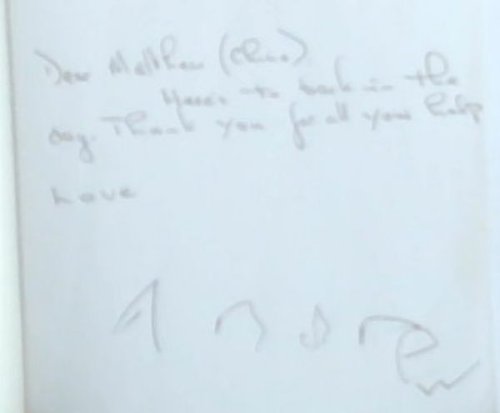 Dear Matthew (Chino)
Here's to back in the
day. Thank you for all your help
Love